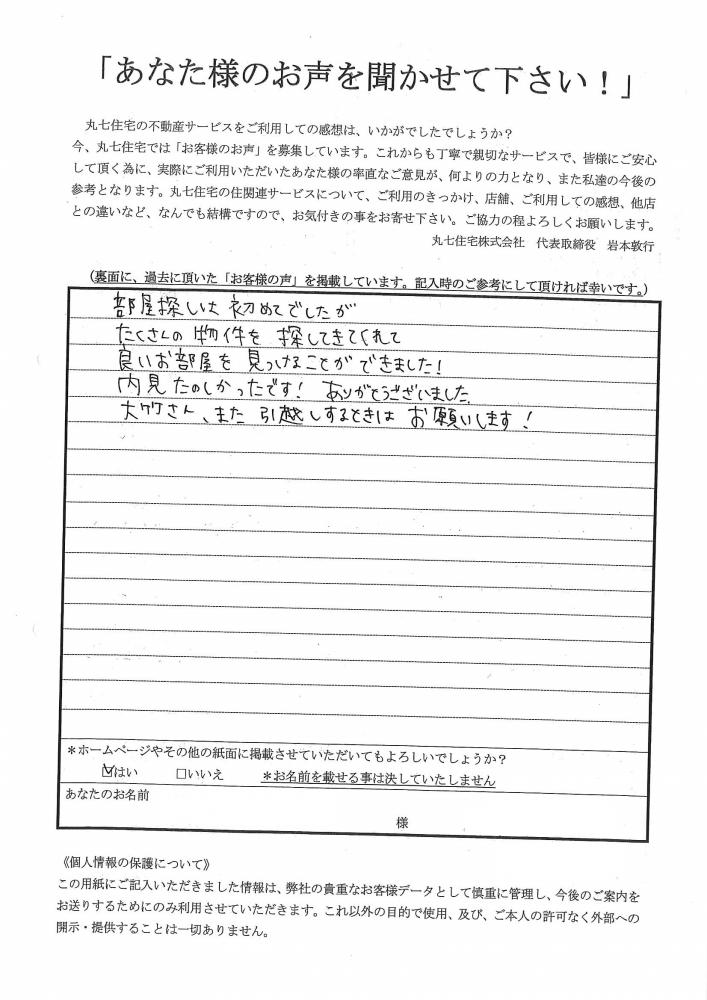 「あなた様のお声を聞かせて下さい！」
丸七住宅の不動産サービスをご利用しての感想は、いかがでしたでしょうか？
今、丸七住宅では「お客様のお声」を募集しています。これからも丁寧で親切なサービスで、皆様にご安心
して頂く為に、実際にご利用いただいたあなた様の率直なご意見が、何よりの力となり、また私達の今後の
参考となります。丸七住宅の住関連サービスについて、ご利用のきっかけ、店舗、ご利用しての感想、他店
との違いなど、なんでも結構ですので、お気付きの事をお寄せ下さい。ご協力の程よろしくお願いします。
丸七住宅株式会社　代表取締役　岩本敦行
（裏面に、過去に頂いた「お客様の声」を掲載しています。記入時のご参考にして頂ければ幸いです。）
部屋探しは 初めてでしたが
たくさんの 物件を 探してきてくれて
良いお部屋を 見つけることが できました！
内見 たのしかったです！ ありがとうございました。
大竹さん、また 引越しするときは お願いします！
＊ホームページやその他の紙面に掲載させていただいてもよろしいでしょうか？
☑はい　□いいえ　＊お名前を載せる事は決していたしません
あなたのお名前
様
《個人情報の保護について》
この用紙にご記入いただきました情報は、弊社の貴重なお客様データとして慎重に管理し、今後のご案内を
お送りするためにのみ利用させていただきます。これ以外の目的で使用、及び、ご本人の許可なく外部への
開示・提供することは一切ありません。